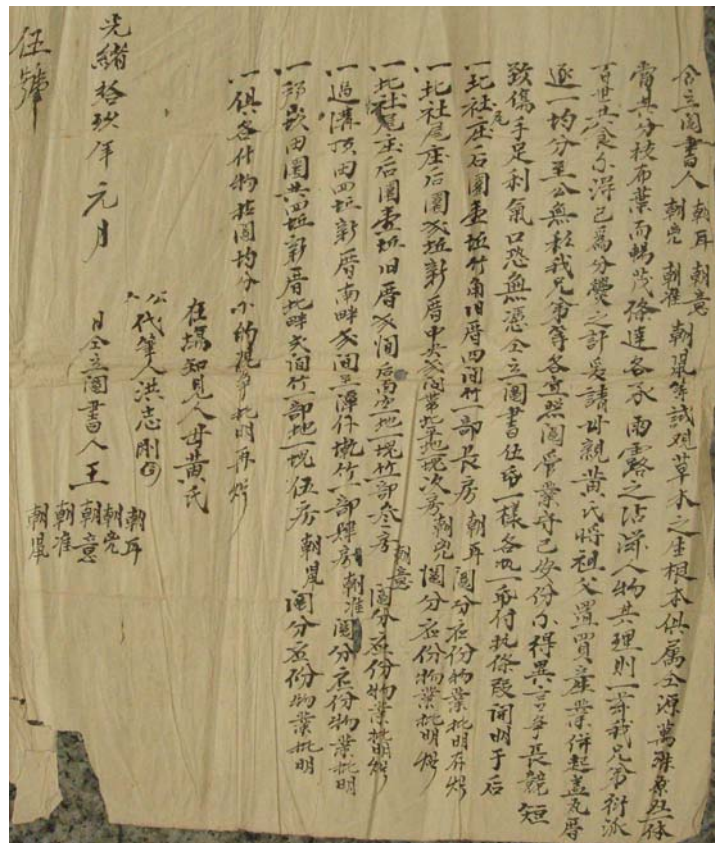 仝立鬮書人 朝耳 朝意 朝兜 朝准 朝鼠等誠观草木之生根本俱属仝源萬派原為一体
當其分枝布葉而暢茂條達各承雨露之沾濡人物其理則一寿我兄弟衍派
百世共食不得已為分爨之計爰請母親黄氏將祖父遺買產業併起盖瓦厝
逐一均分至公無私我兄弟等各宜照鬮管業守己安份不得異言争長競短
致傷手足利氣口恐無憑仝立鬮書伍帋一樣各执一帋付执條段開明于后
一北社尾庄后園壹坵竹角旧厝四间竹一部長房 朝耳 鬮分应份物業批明存炤
一北社尾庄后園弍坵新厝中央弍间 地一塊次房 朝兜 鬮分应份物業批明炤
一北社尾庄后園壹坵旧厝弍间后 地一塊竹一部叁房 朝意 鬮分应份物業批明炤
一过溝頂田四坵新厝南畔弍间 竹一部肆房 朝准 鬮分应份物業批明
一 田園共四坵新厝北畔弍间竹一部地一塊伍房 朝鼠 鬮分应份物業批明
一俱各什物拉鬮均分不的混争批明再炤
在場知見人母黄氏
代筆人洪志剛
光緒拾玖年 元月 日仝立鬮書人王 朝耳 朝兜 朝意 朝准 朝鼠
伍號